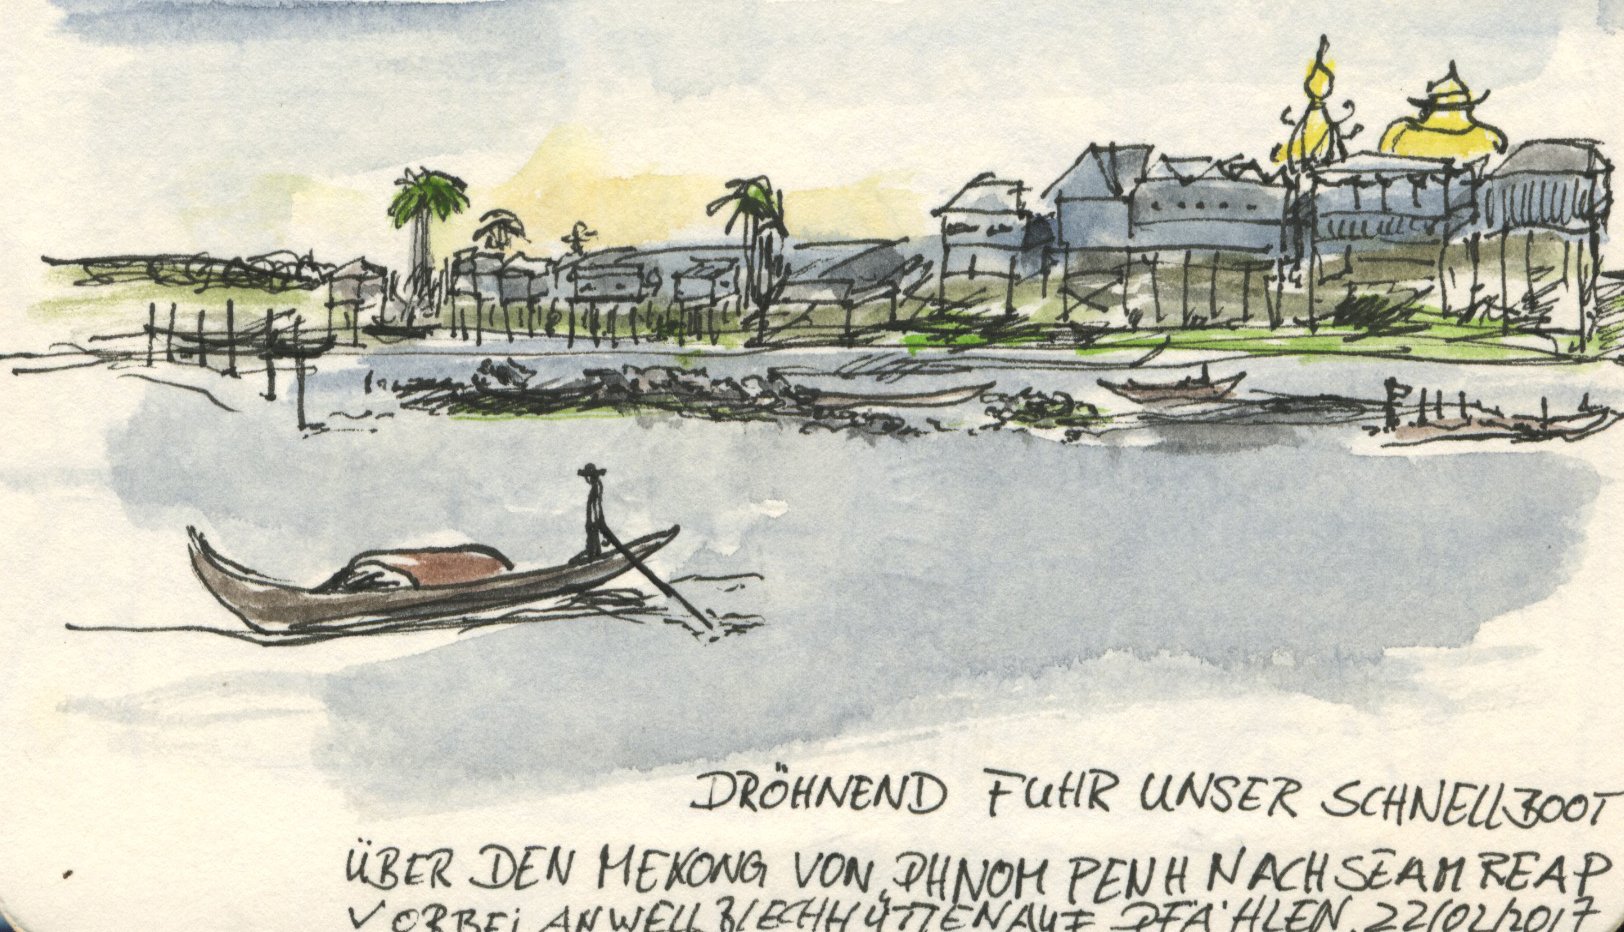 DRÖHNEND FUHR UNSER SCHNELLBOOT
ÜBER DEN MEKONG VON PHNOM PENH NACH SEAM REAP
VORBEI AN WELLBLECHHÜTTEN AUF PFÄHLEN. 22/02/2017